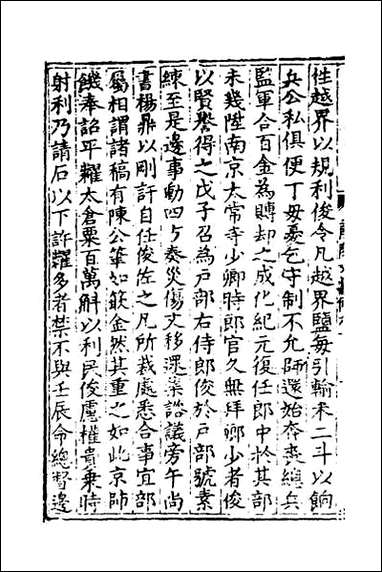 性越界以規利俊令凡越界鹽每引輸米二斗以餉
兵公私俱便丁毋憂乞守制不允師還始奔喪總兵
監軍合百金為賻却之成化紀元復任郎中扵其部
未幾陞南京太常寺少卿時郎官久無拜卿少者俊
以賢譽得之戊子召為戶部右侍郎俊於戶部號素
練至是邊事動四方奏災傷文移遝集諮議旁午尚
書楊鼎以剛訐自任俊佐之凡所裁處悉合事宜部
屬相謂諸稿有陳公筆如鉼金然其重之如此京師
饑奉詔平糶太倉粟百萬斛以利民俊慮權貴乗時
射利乃請石以下許糶多者禁不與壬辰命總督邊